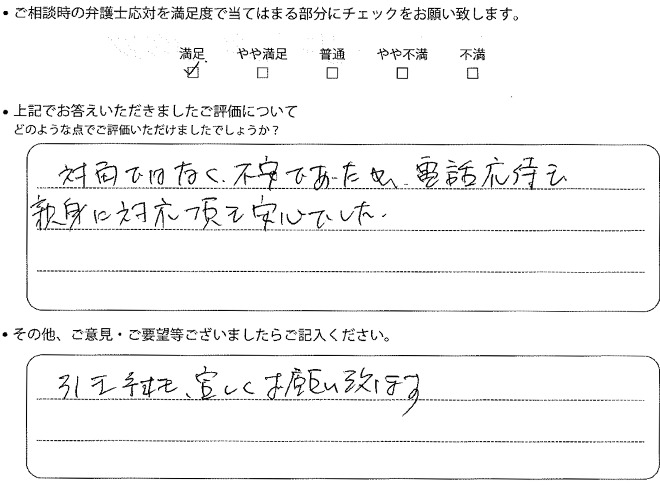 ・ご相談時の弁護士応対を満足度で当てはまる部分にチェックをお願い致します。
満足 やや満足 普通 やや不満 不満
☑ □ □ □ □
・上記でお答えいただきましたご評価について
どのような点でご評価いただけましたでしょうか？
対面ではなく、不安であったが、電話応待も
親身に対応頂き安心でした.
・その他、ご意見・ご要望等ございましたらご記入ください。
引き続き、宜しくお願い致します